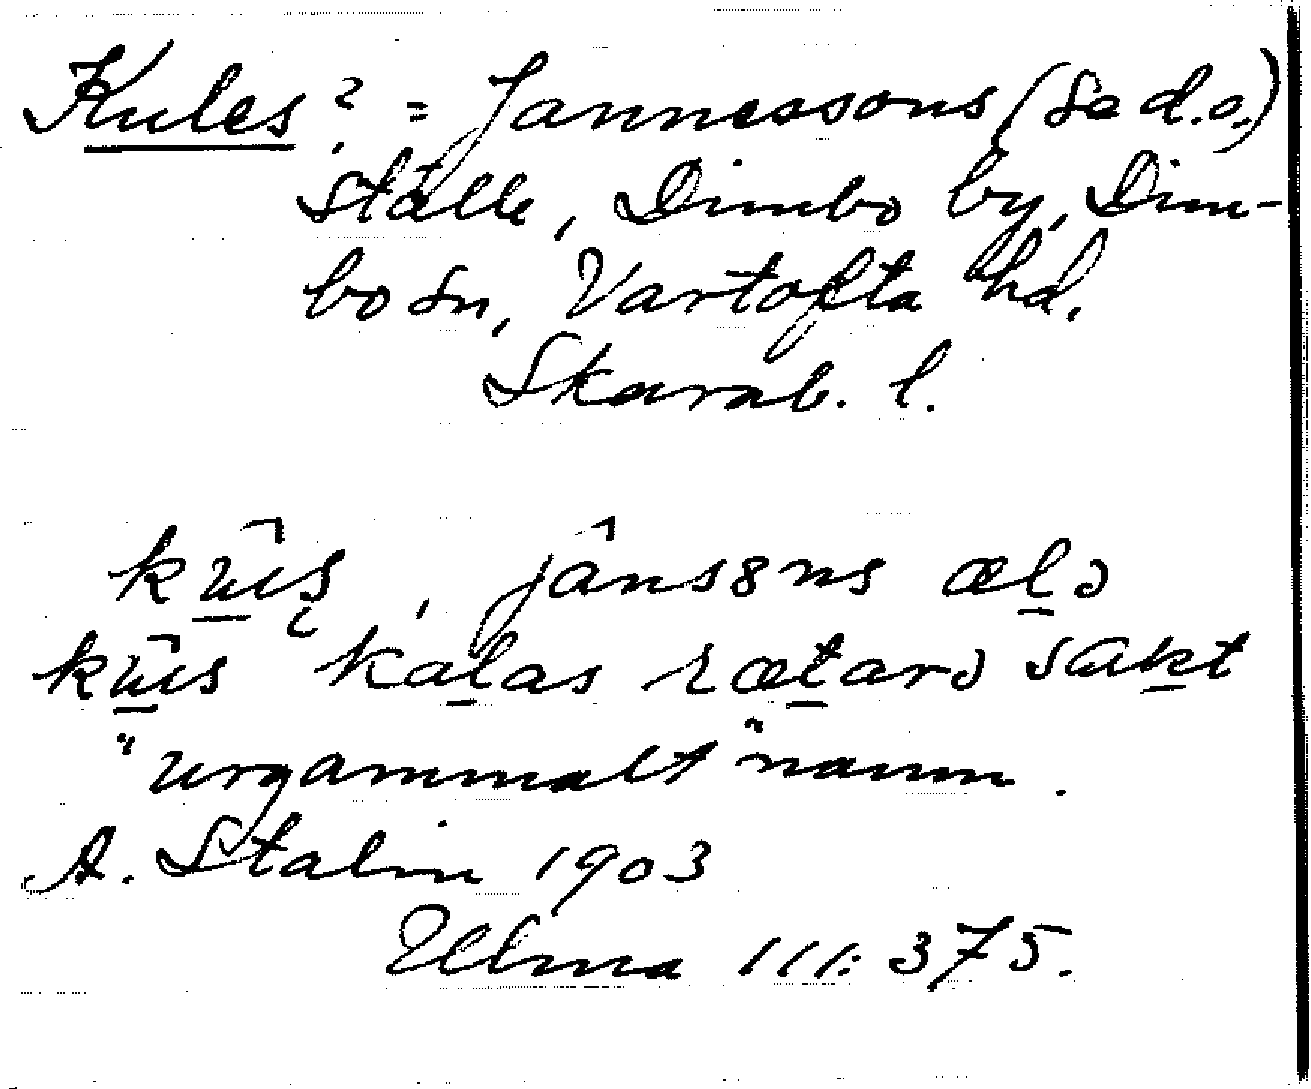 Kules? = Jannessons (se d.o.)
ställe, Dimbo by, Dim-
bo sn, Vartofta hd.
Skarab. l.
kūɩs, jânsȣns æլə
kūɩs kaլas ræտarə sakt
"urgammalt" namn.
A. Stalin 1903
Ulma 111:375.